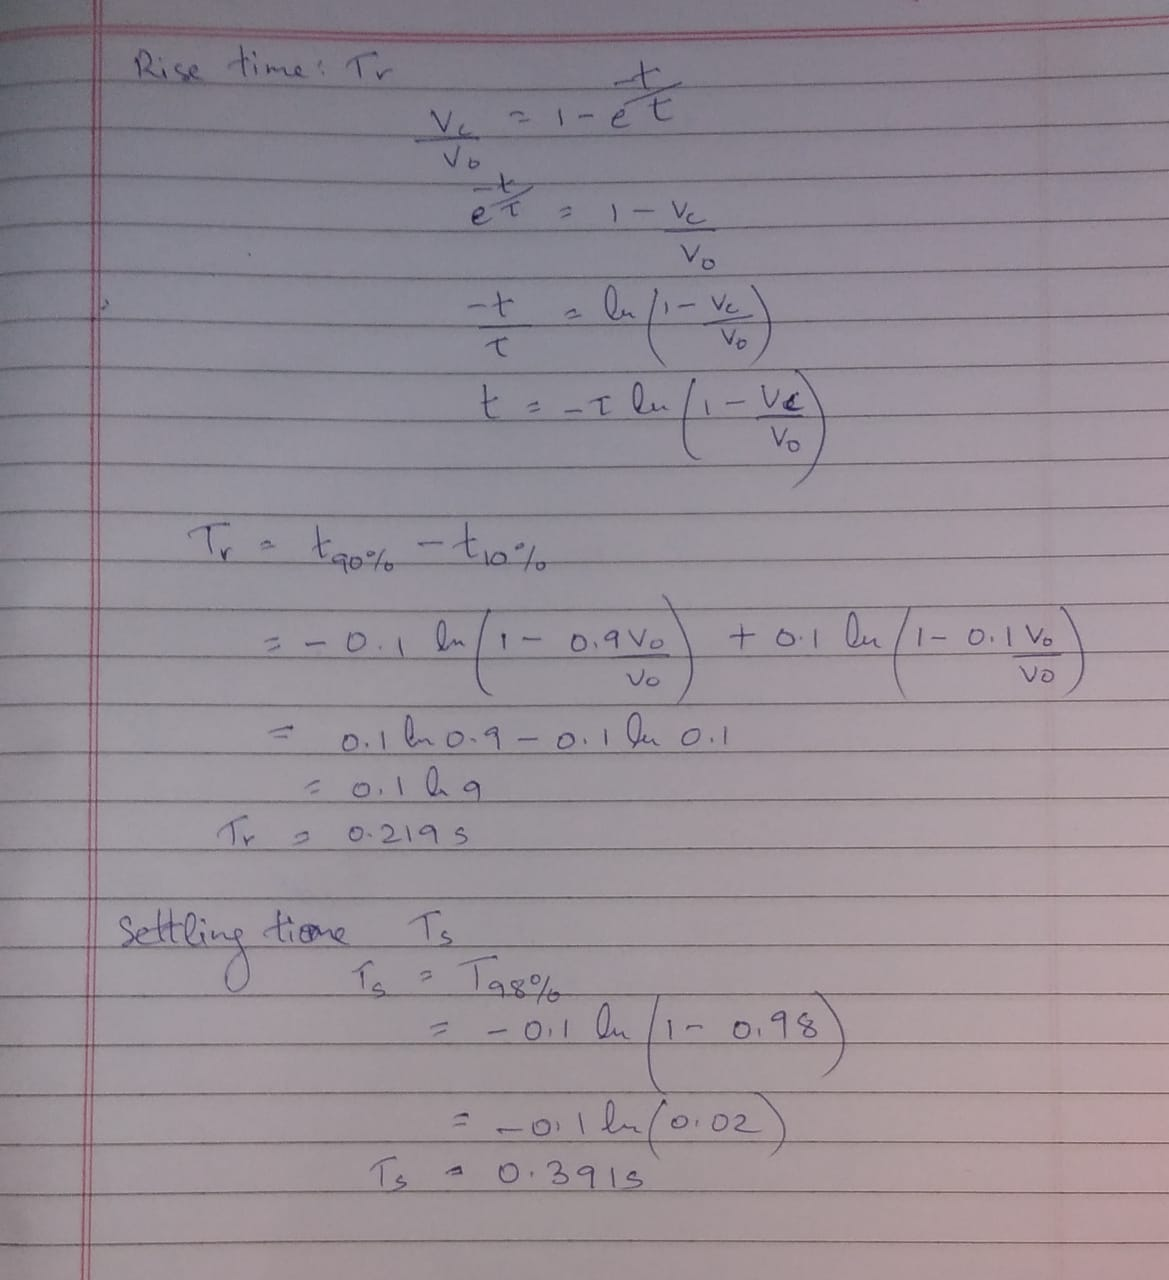 Rise time: Tr
Vc/V0 = 1 - e^(-t/t)
e^(-t/τ) = 1 - Vc/V0
-t/τ = ln(1 - Vc/V0)
t = -τ ln(1 - Vc/V0)
Tr = t90% - t10%
= -0.1 ln(1 - 0.9V0/V0) + 0.1 ln(1 - 0.1V0/V0)
= 0.1 ln 0.9 - 0.1 ln 0.1
= 0.1 ln 9
Tr = 0.219 s
Settling time Ts
Ts = T98%
= -0.1 ln(1 - 0.98)
= -0.1 ln(0.02)
Ts = 0.391s